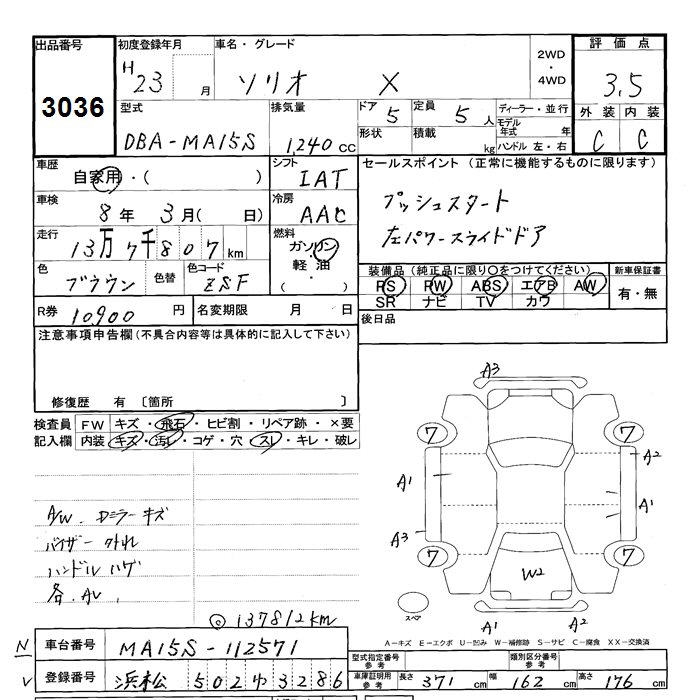 出品番号 初度登録年月 車名・グレード 2WD・4WD 評価点
3036 H23 月 ソリオ X 3,5
型式 排気量 ドア 5 定員 5人 ディーラー・並行 外装 内装
DBA-MA15S 1,240cc 形状 積載 kg モデル年式 年 C C
ハンドル 左・右
車歴 シフト セールスポイント (正常に機能するものに限ります)
自家用・( ) IAT プッシュスタート
車検 冷房
8年 3月( 日) AAC 左パワースライドドア
走行 燃料
13万7千807km ガソリン・軽油・( )
色 色替 色コード 装備品(純正品に限り○をつけてください) 新車保証書
ブラウン ZSF PS PW ABS エアB AW 有・無
SR ナビ TV カワ
R券 10900円 名変期限 月 日 後日品
注意事項申告欄(不具合内容等は具体的に記入して下さい)
修復歴 有〔箇所 〕
検査員 FW キズ・飛石・ヒビ割・リペア跡・×要
記入欄 内装 キズ・汚レ・コゲ・穴・スレ・キレ・破レ
A3
7 7
A2
A1 A1
A3
7 7
W2
スペア
A1 A2
A/W. Dミラーキズ
バイザー 外れ
ハンドル ハゲ
各. AU,
◎137812km
A-キズ E-エクボ U-凹み W-補修跡 S-サビ C-腐食 XX-交換済
N 車台番号 MA15S-112571 型式指定番号 参考 類別区分番号 参考
V 登録番号 浜松 502ゆ3286 車庫証明用 参考 長さ 371cm 幅 162cm 高さ 176cm